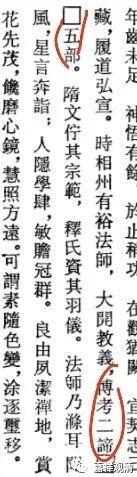 年齒未足 神悟有餘 於止積功 在觀猶
藏，履道弘宣。時相州有裕法師，大開教義，博考二諦，
□五部。隋文佇其宗範，釋氏資其羽儀。法師乃滌耳
風，星言奔詣；人隱學肆，敏贍冠群。良由夙潔禪地，賞
花先茂，饒磨心鏡，慧照方遠。可謂素隨色變，涂逐璽移。